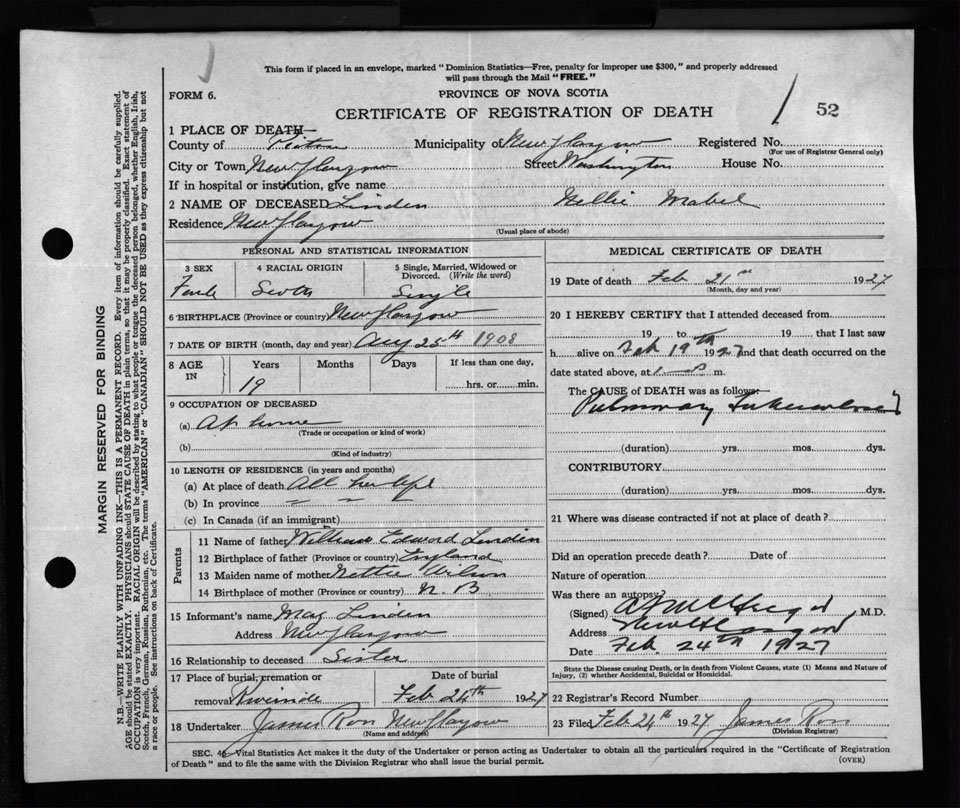 This form if placed in an envelope, marked "Dominion Statistics—Free, penalty for improper use $300," and properly addressed
will pass through the Mail "FREE."
FORM 6.
PROVINCE OF NOVA SCOTIA
CERTIFICATE OF REGISTRATION OF DEATH
52
1 PLACE OF DEATH—
County of Pictou Municipality of New Glasgow Registered No.
(For use of Registrar General only)
City or Town New Glasgow Street Washington House No.
If in hospital or institution, give name
2 NAME OF DECEASED Linden Nellie Mabel
Residence New Glasgow
(Usual place of abode)
PERSONAL AND STATISTICAL INFORMATION
3 SEX 4 RACIAL ORIGIN 5 Single, Married, Widowed or
Divorced. (Write the word)
Single
6 BIRTHPLACE (Province or country) New Glasgow
7 DATE OF BIRTH (month, day and year) Aug 25th 1908
8 AGE IN Years Months Days If less than one day,
19 hrs. or min.
9 OCCUPATION OF DECEASED
(a) At home
(Trade or occupation or kind of work)
(b)
(Kind of industry)
10 LENGTH OF RESIDENCE (in years and months)
(a) At place of death All her life
(b) In province " " "
(c) In Canada (if an immigrant)
Parents
11 Name of father William Edward Linden
12 Birthplace of father (Province or country) England
13 Maiden name of mother Nettie Wilson
14 Birthplace of mother (Province or country) N. B.
15 Informant's name May Linden
Address New Glasgow
16 Relationship to deceased Sister
17 Place of burial, cremation or Date of burial
removal Riverside Feb 24th 1927
18 Undertaker James Ross New Glasgow
(Name and address)
MEDICAL CERTIFICATE OF DEATH
19 Date of death Feb 21st 1927
(Month, day and year)
20 I HEREBY CERTIFY that I attended deceased from
19 to 19 that I last saw
h alive on Feb 19th 1927 and that death occurred on the
date stated above, at m.
The CAUSE of DEATH was as follows:
Pulmonary Tuberculosis
(duration) yrs. mos. dys.
CONTRIBUTORY
(duration) yrs. mos. dys.
21 Where was disease contracted if not at place of death?
Did an operation precede death? Date of
Nature of operation
Was there an autopsy?
(Signed) M.D.
Address New Glasgow
Date Feb. 24th 1927
State the Disease causing Death, or in death from Violent Causes, state (1) Means and Nature of
Injury, (2) whether Accidental, Suicidal or Homicidal.
22 Registrar's Record Number
23 Filed Feb 24th 1927 James Ross
(Division Registrar)
SEC. 46—Vital Statistics Act makes it the duty of the Undertaker or person acting as Undertaker to obtain all the particulars required in the "Certificate of Registration
of Death" and to file the same with the Division Registrar who shall issue the burial permit.
(OVER)
MARGIN RESERVED FOR BINDING
N.B.—WRITE PLAINLY WITH UNFADING INK—THIS IS A PERMANENT RECORD. Every item of information should be carefully supplied.
AGE should be stated EXACTLY. PHYSICIANS should STATE CAUSE OF DEATH in plain terms, so that it may be properly classified. Exact statement of
OCCUPATION is very important. RACIAL ORIGIN will be described by stating to what people or tongue the deceased person belonged, whether English, Irish,
Scotch, French, German, Russian, Ruthenian, etc. The terms "AMERICAN" or "CANADIAN" SHOULD NOT BE USED as they express citizenship but not
a race or people. See instructions on back of Certificate.